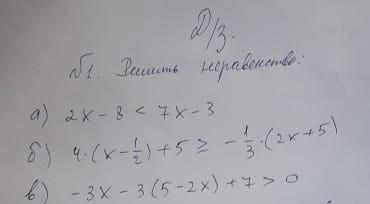 Д/з.
№1. Решить неравенство:
а) 2x - 8 < 7x - 3
б) 4·(x - 1/2) + 5 ≥ -1/3·(2x + 5)
в) -3x - 3(5 - 2x) + 7 > 0